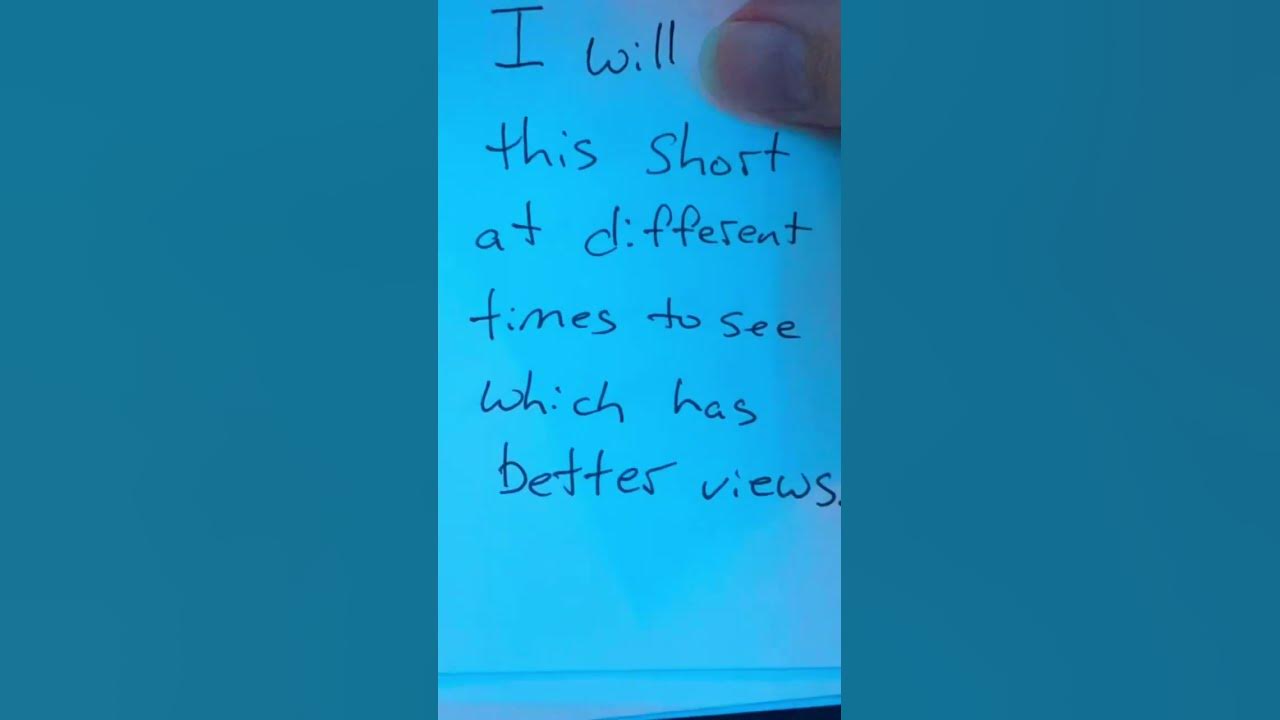 I will
this short
at different
times to see
which has
better views.